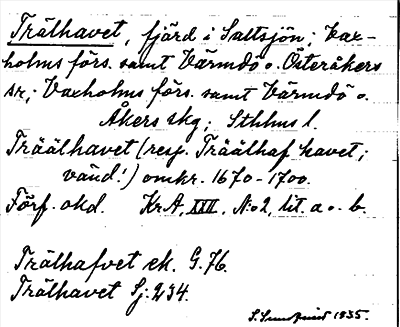 Trälhavet, fjärd i Saltsjön; Vax-
holms förs. samt Värmdö o. Österåkers
sr; Vaxholms förs. samt Värmdö o.
Åkers skg; Sthlms l.
Träälhavet (resp. Träälhaf havet;
vänd!) omkr. 1670-1700.
Förf. okd. KrA, XXII. N:o 2, lit. a o. b.
Trälhafvet ek. G. 76.
Trälhavet Sj. 234.
1935.